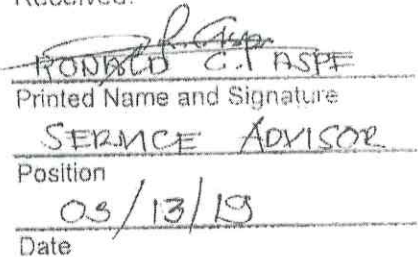 Received:
RONALD C. ASPE
Printed Name and Signature
SERVICE ADVISOR
Position
03/13/19
Date